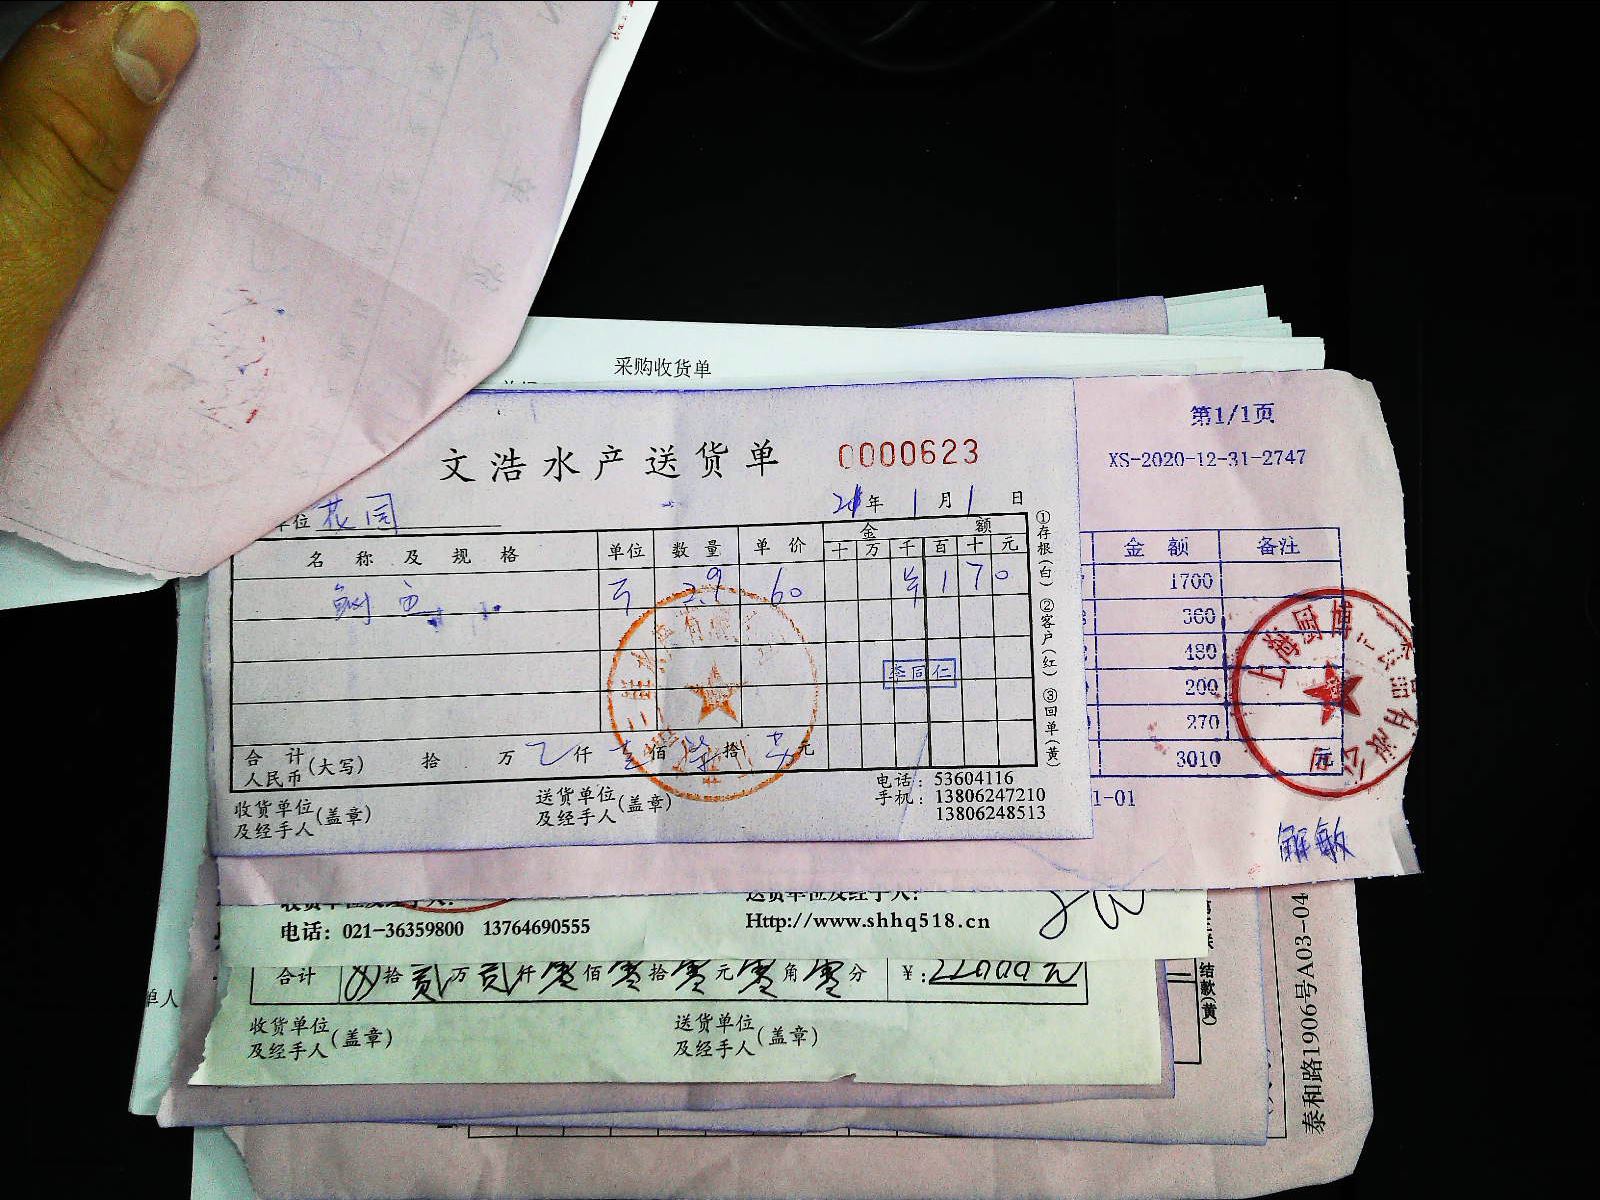 采购收货单
第1/1页
文浩水产送货单 0000623
XS-2020-12-31-2747
单位 花园 21年 1月 1日
名称及规格 单位 数量 单价 金额
十 万 千 百 十 元
60 1 7 0
李同仁
合计人民币(大写) 拾 万 仟 佰 拾 元
①存根(白) ②客户(红) ③回单(黄)
收货单位及经手人(盖章) 送货单位及经手人(盖章)
电话: 53604116
手机: 13806247210
13806248513
金额 备注
1700
360
480
200
270
3010 元
1-01
解敏
收货单位及经手人: 送货单位及经手人:
电话: 021-36359800 13764690555 Http://www.shhq518.cn
合计 拾 贰 万 贰 仟 零 佰 零 拾 零 元 零 角 零 分 ¥: 22000元
收货单位及经手人(盖章) 送货单位及经手人(盖章)
单人
结款(黄)
泰和路1906号A03-04